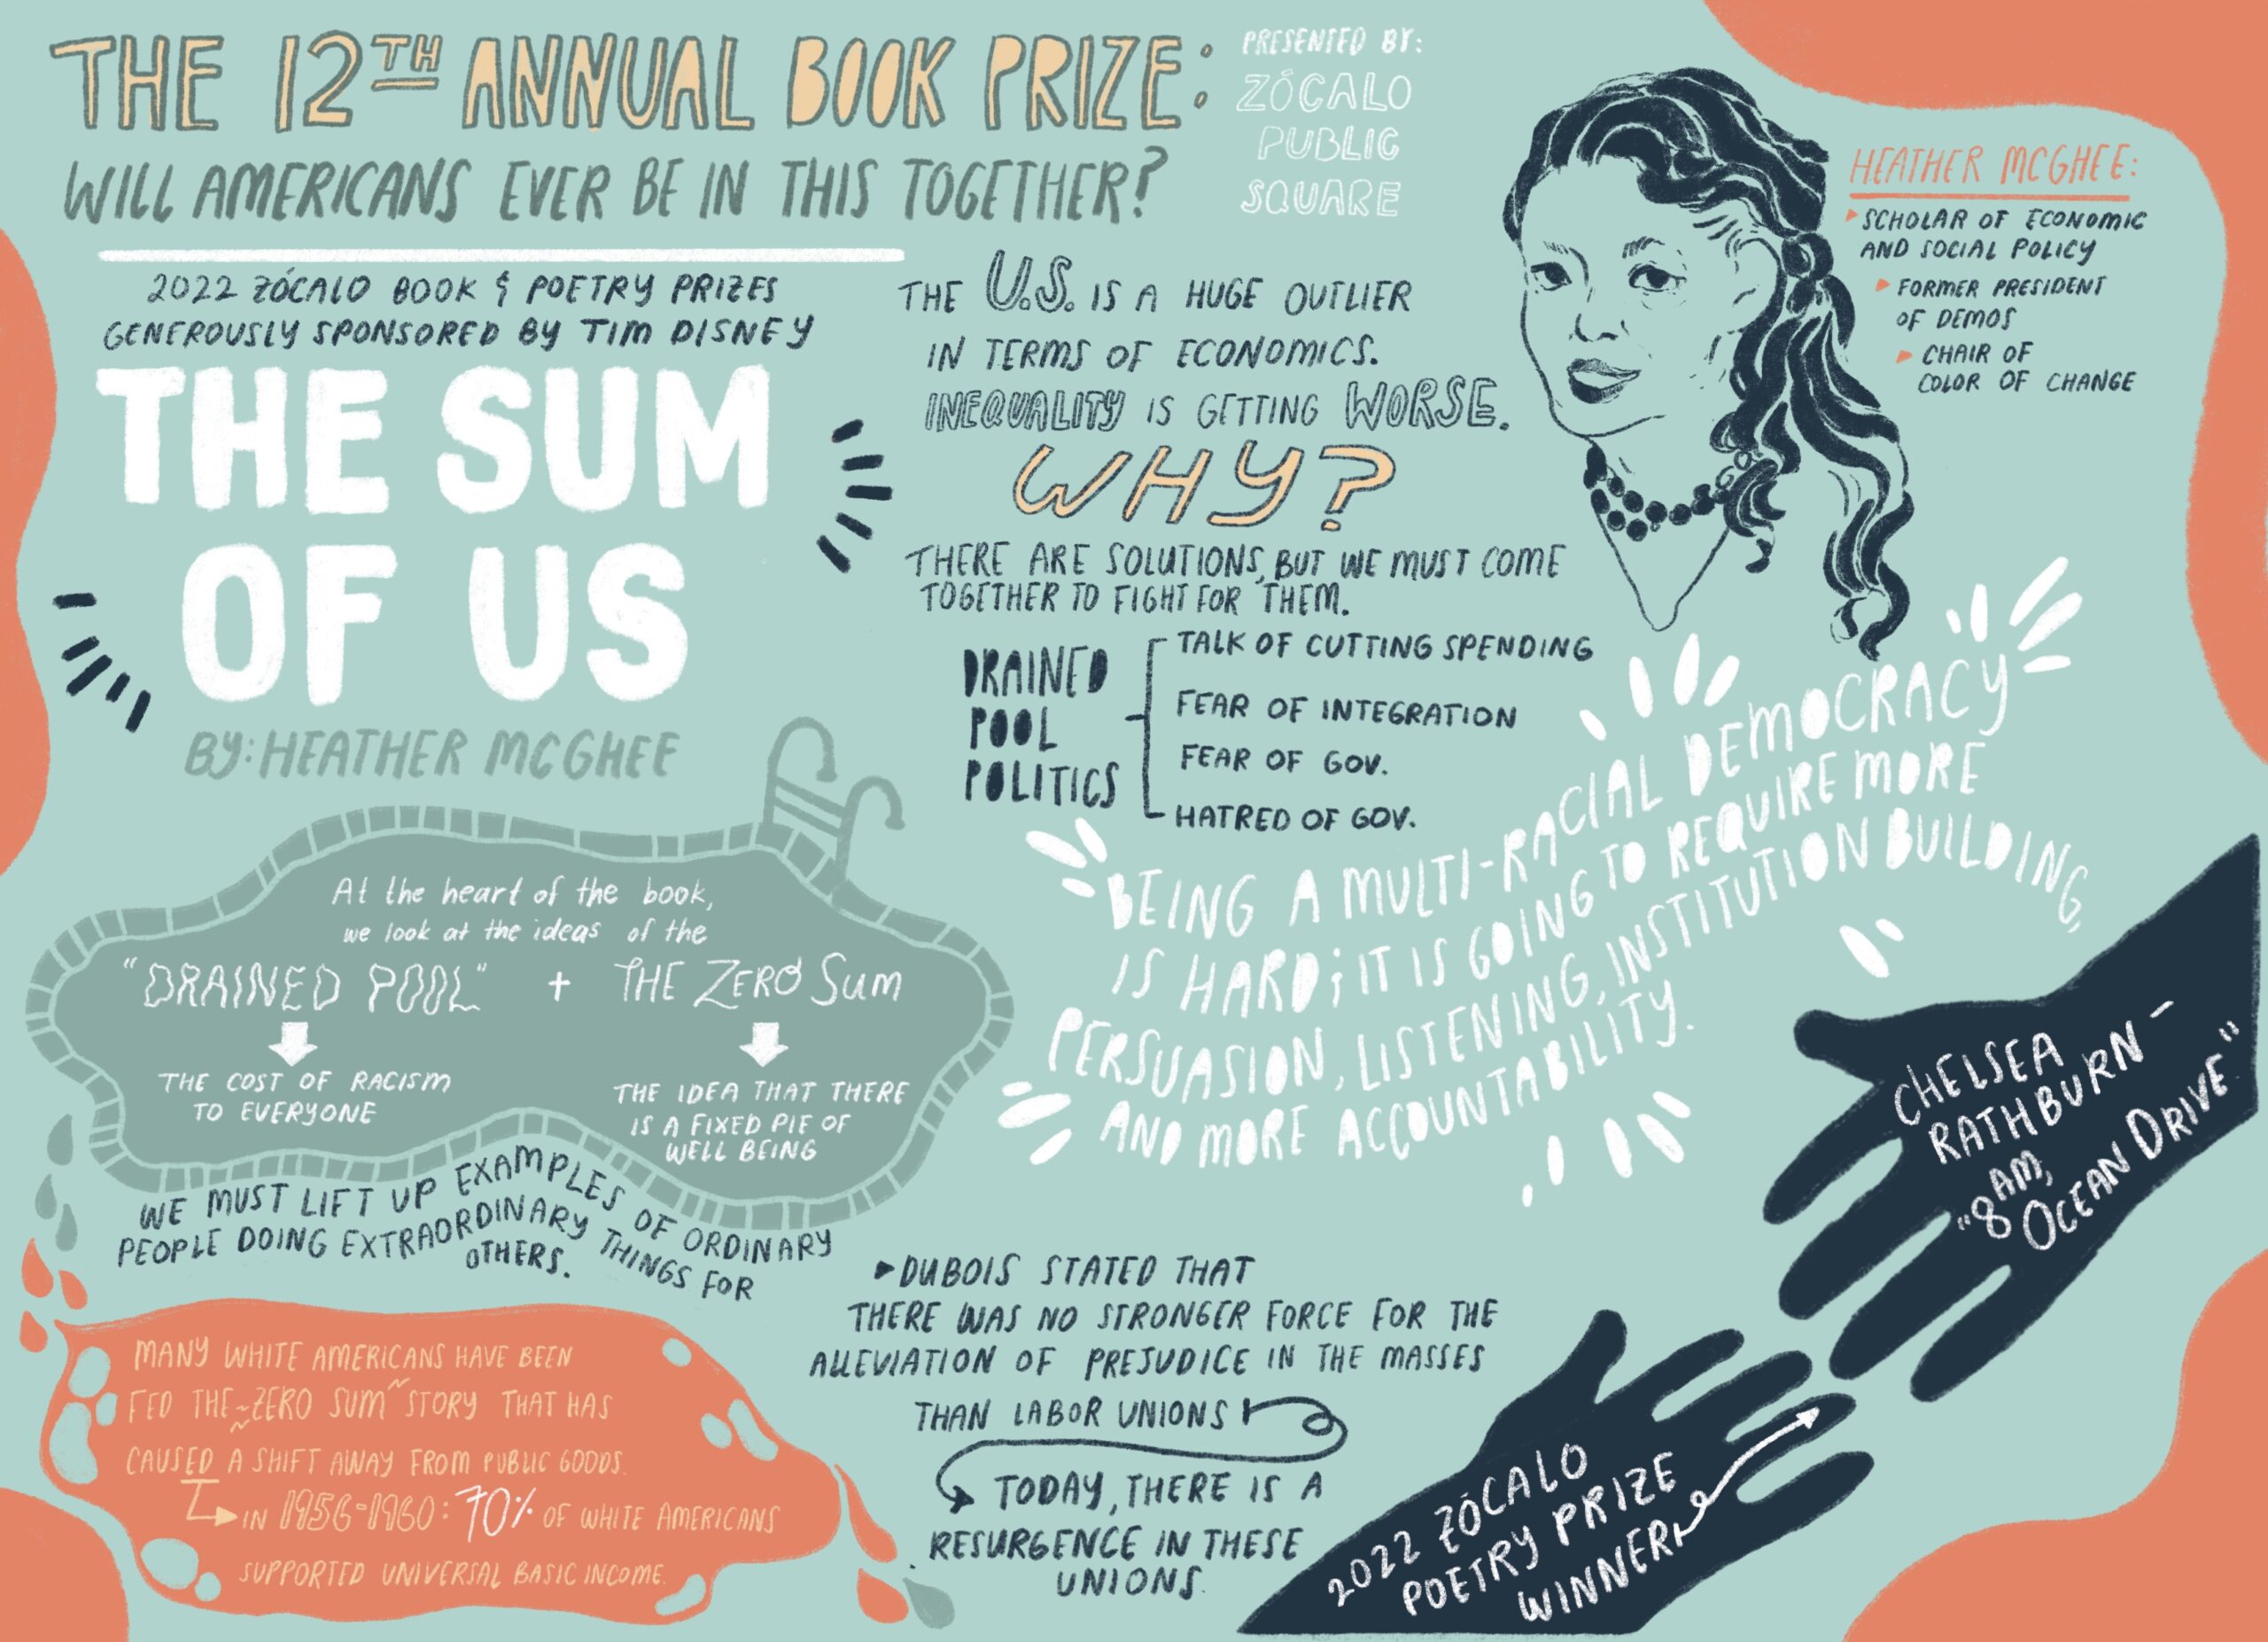 THE 12TH ANNUAL BOOK PRIZE:
WILL AMERICANS EVER BE IN THIS TOGETHER?
PRESENTED BY:
ZÓCALO
PUBLIC
SQUARE
2022 ZÓCALO BOOK & POETRY PRIZES
GENEROUSLY SPONSORED BY TIM DISNEY
THE SUM
OF US
BY: HEATHER MCGHEE
THE U.S. IS A HUGE OUTLIER
IN TERMS OF ECONOMICS.
INEQUALITY IS GETTING WORSE.
WHY?
THERE ARE SOLUTIONS, BUT WE MUST COME
TOGETHER TO FIGHT FOR THEM.
HEATHER MCGHEE:
SCHOLAR OF ECONOMIC
AND SOCIAL POLICY
FORMER PRESIDENT
OF DEMOS
CHAIR OF
COLOR OF CHANGE
DRAINED
POOL
POLITICS
TALK OF CUTTING SPENDING
FEAR OF INTEGRATION
FEAR OF GOV.
HATRED OF GOV.
BEING A MULTI-RACIAL DEMOCRACY
IS HARD; IT IS GOING TO REQUIRE MORE
PERSUASION, LISTENING, INSTITUTION BUILDING,
AND MORE ACCOUNTABILITY.
At the heart of the book,
we look at the ideas of the
"DRAINED POOL" + THE ZERO SUM
THE COST OF RACISM
TO EVERYONE
THE IDEA THAT THERE
IS A FIXED PIE OF
WELL BEING
WE MUST LIFT UP EXAMPLES OF ORDINARY
PEOPLE DOING EXTRAORDINARY THINGS FOR
OTHERS.
MANY WHITE AMERICANS HAVE BEEN
FED THE ~ZERO SUM~ STORY THAT HAS
CAUSED A SHIFT AWAY FROM PUBLIC GOODS.
IN 1956-1960: 70% OF WHITE AMERICANS
SUPPORTED UNIVERSAL BASIC INCOME.
DUBOIS STATED THAT
THERE WAS NO STRONGER FORCE FOR THE
ALLEVIATION OF PREJUDICE IN THE MASSES
THAN LABOR UNIONS
TODAY, THERE IS A
RESURGENCE IN THESE
UNIONS.
CHELSEA
RATHBURN -
"8 AM,
OCEAN DRIVE"
2022 ZÓCALO
POETRY PRIZE
WINNER